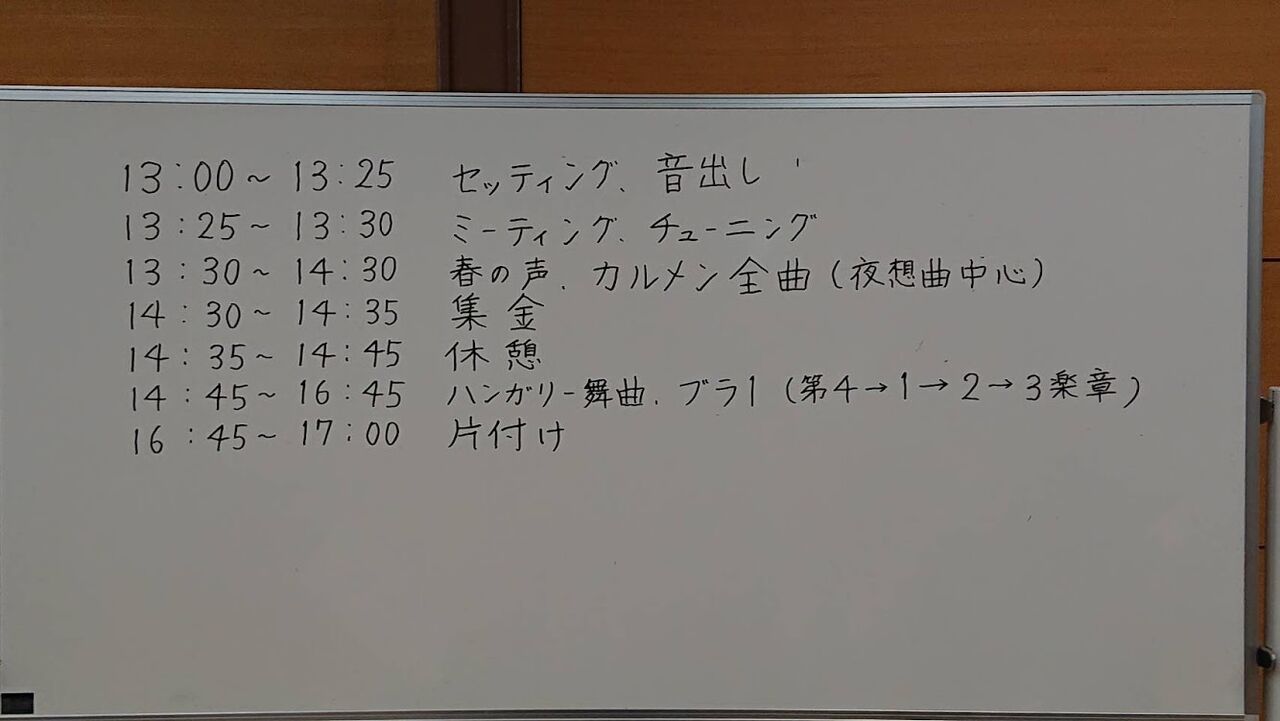 13:00～13:25 セッティング、音出し
13:25～13:30 ミーティング、チューニング
13:30～14:30 春の声、カルメン全曲(夜想曲中心)
14:30～14:35 集金
14:35～14:45 休憩
14:45～16:45 ハンガリー舞曲、ブラ1(第4→1→2→3楽章)
16:45～17:00 片付け